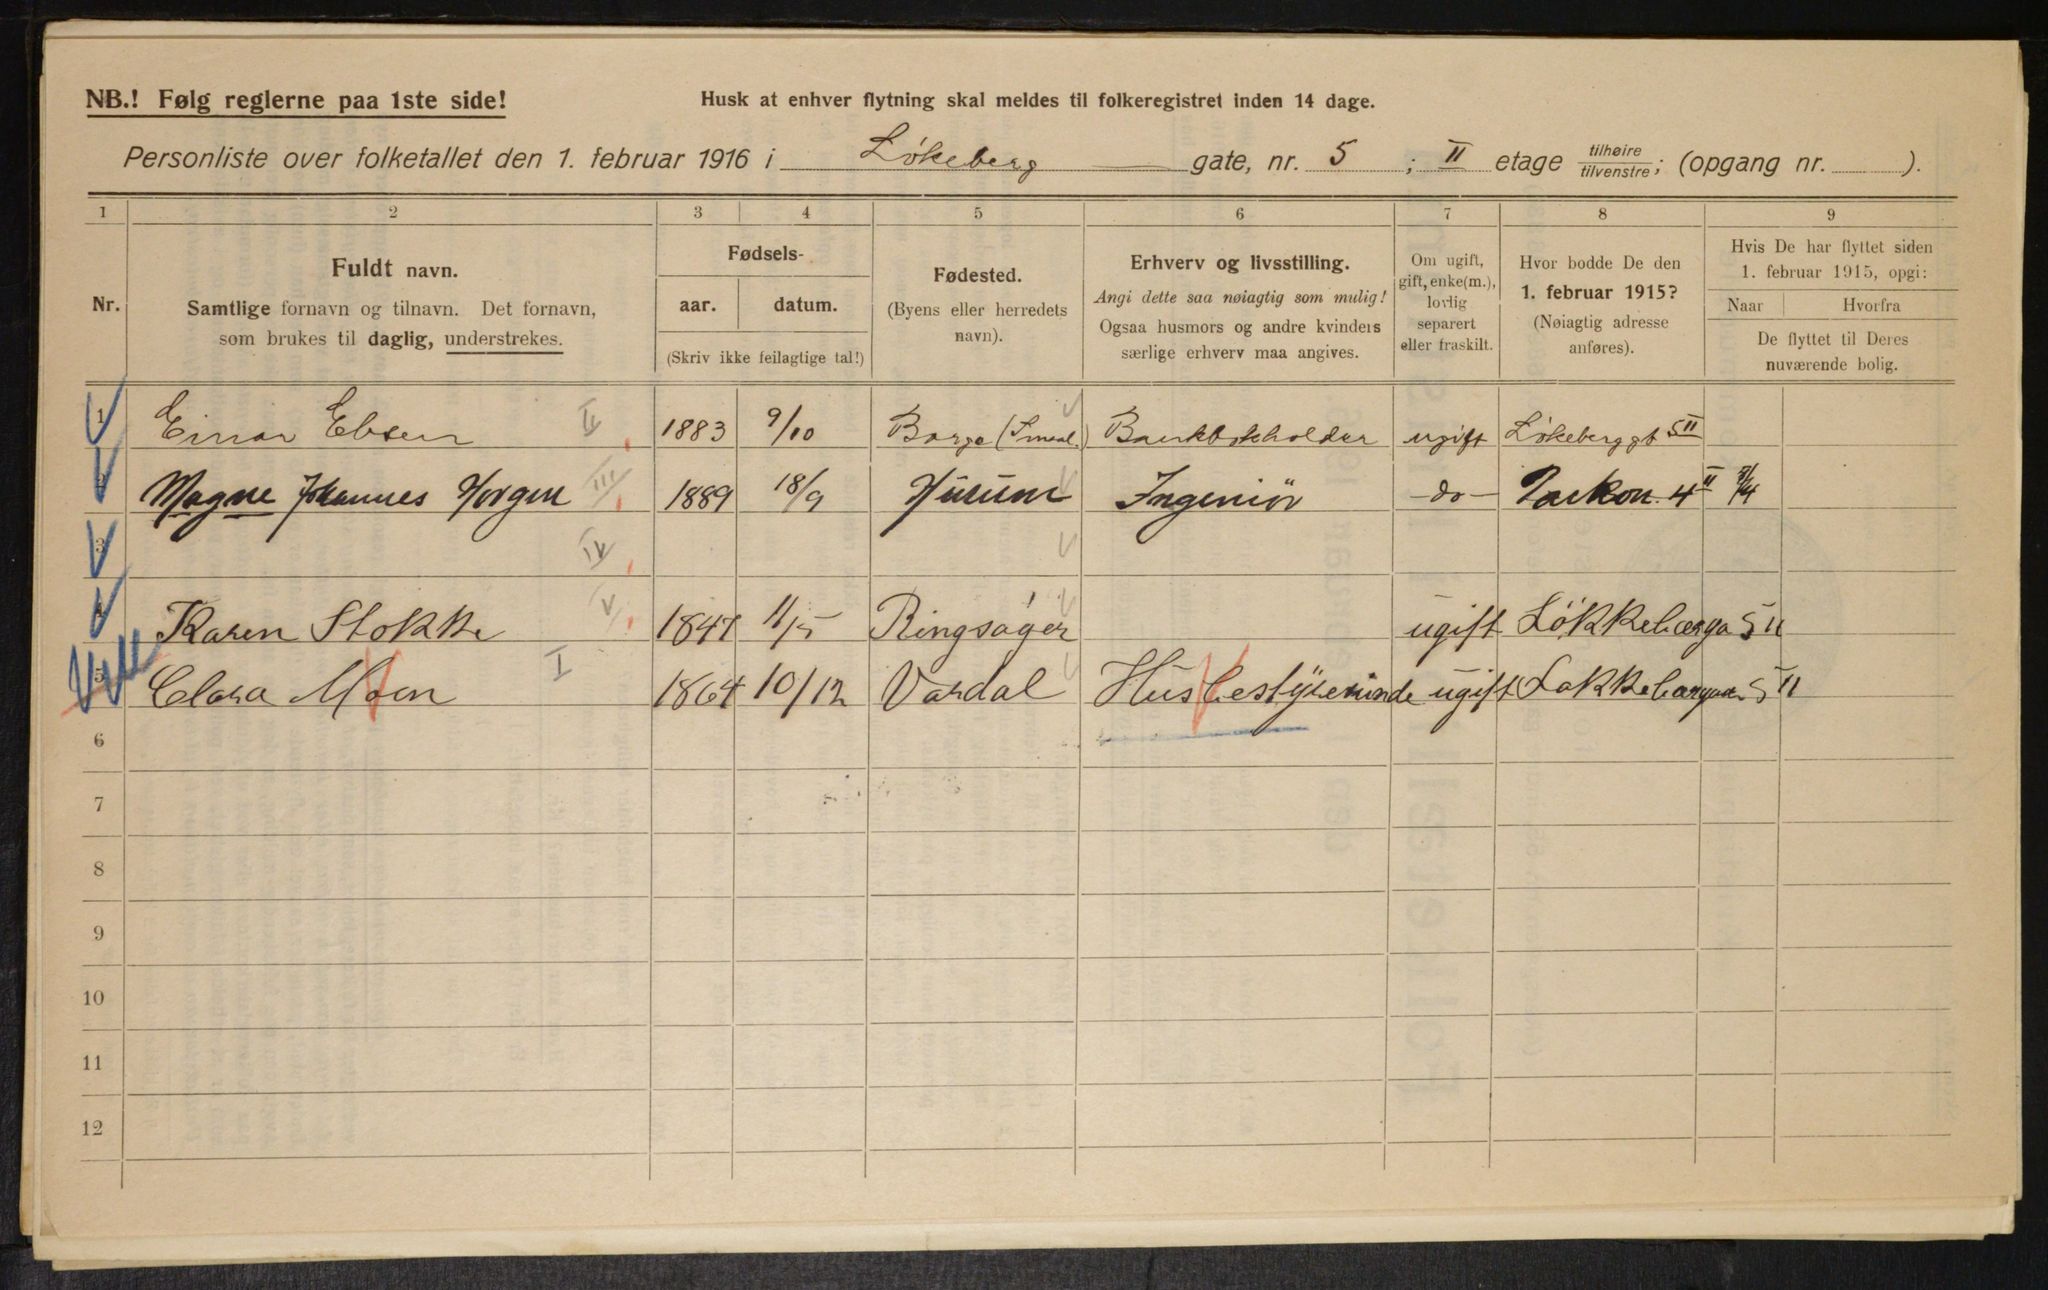 NB.! Følg reglerne paa 1ste side!
Husk at enhver flytning skal meldes til folkeregistret inden 14 dage.
Personliste over folketallet den 1. februar 1916 i Løkeberg gate, nr. 5 ; II etage tilhøire/tilvenstre; (opgang nr. ).
1 2 3 4 5 6 7 8 9
Nr.
Fuldt navn.
Samtlige fornavn og tilnavn. Det fornavn,
som brukes til daglig, understrekes.
Fødsels-
aar. datum.
(Skriv ikke feilagtige tal!)
Fødested.
(Byens eller herredets
navn).
Erhverv og livsstilling.
Angi dette saa nøiagtig som mulig!
Ogsaa husmors og andre kvinders
særlige erhverv maa angives.
Om ugift,
gift, enke(m.),
lovlig
separert
eller fraskilt.
Hvor bodde De den
1. februar 1915?
(Nøiagtig adresse
anføres).
Hvis De har flyttet siden
1. februar 1915, opgi:
Naar Hvorfra
De flyttet til Deres
nuværende bolig.
1 Einar Ebsen II 1883 9/10 Borge (Smaal.) Bankbokholder ugift Løkeberggt 5 II
2 Magne Johannes Horgen III 1889 18/9 Hurum Ingeniör -do- Parkvn. 4 II
3 IV
4 Karen Stokke V 1847 11/5 Ringsager ugift Løkkebærga 5 II
5 Clara Moen I 1864 10/12 Vardal Husbestyrerinde ugift Løkkebærgae 5 II
6
7
8
9
10
11
12